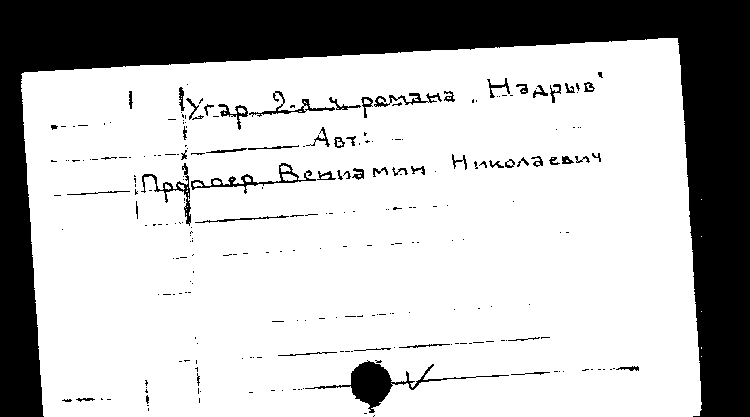 Угар 2-я ч. романа „Надрыв"
Авт.:
Проппер, Вениамин Николаевич